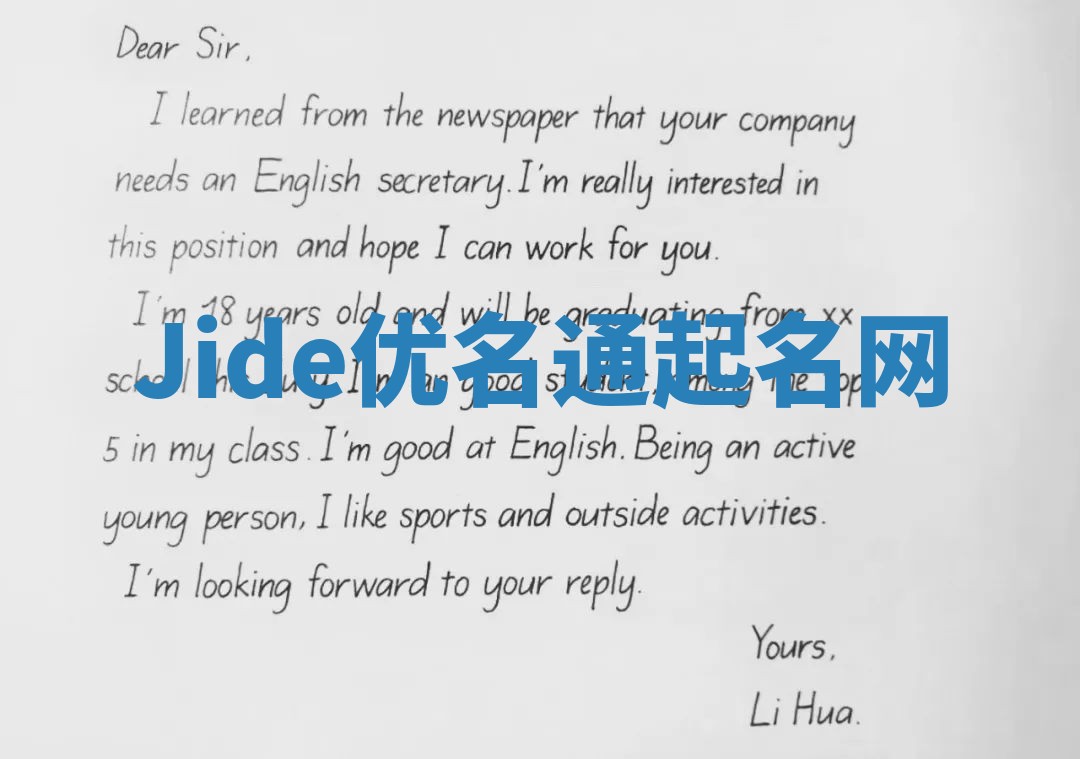 Dear Sir,
I learned from the newspaper that your company
needs an English secretary. I'm really interested in
this position and hope I can work for you.
I'm 18 years old and will be graduating from xx
Jide优名通起名网
school this July. I'm an good student, among the top
5 in my class. I'm good at English. Being an active
young person, I like sports and outside activities.
I'm looking forward to your reply.
Yours,
Li Hua.